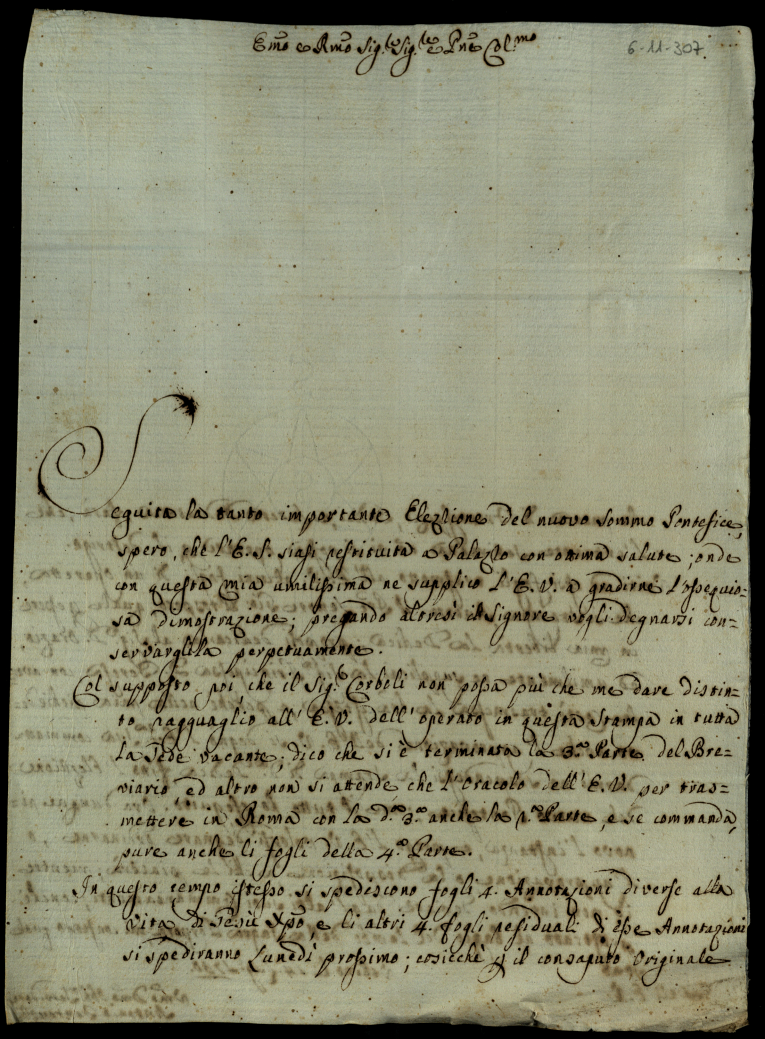 Em̃o e Rmõ Sig.re Sig.re e Pne Col.mo
6-11-307
Seguita la tanto importante Elezione del nuovo Sommo Pontefice,
spero, che l'E. V. siasi restituita a Palazzo con ottima salute; onde
con questa mia umilissima ne supplico l'E. V. a gradirne l'ossequio=
sa dimostrazione; pregando altresì il Signore vogli degnarsi con=
servargliela perpetuamente.
Col supposto poi che il Sig.e Corboli non possa più che me dare distin=
to ragguaglio all'E. V. dell'operato in questa Stampa in tutta
la Sede vacante; dico che si è terminata la 3.a Parte del Bre=
viario, ed altro non si attende che l'Oracolo dell'E. V. per tras=
mettere in Roma con la d.a 3.a anche la 1.a Parte, e se commanda,
pure anche li fogli della 4.a Parte.
In questo tempo istesso si spediscono fogli 4. Annotazioni diverse alla
Vita di Gesù Xpõ e li altri 4. fogli residuali di esse Annotazioni
si spediranno Lunedì prossimo; cosicchè il consaputo Originale